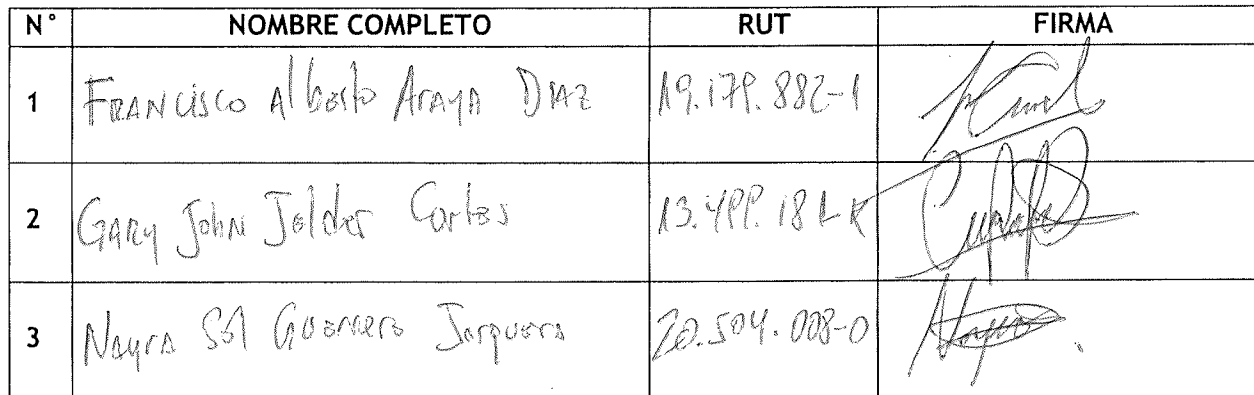 N° NOMBRE COMPLETO RUT FIRMA
1 FRANCISCO Alberto Araya DIAZ 19.179.882-1
2 GARY JOHN Jelder Cortes
3 Nayra Sol Guerrero Jorquera 20.504.008-0